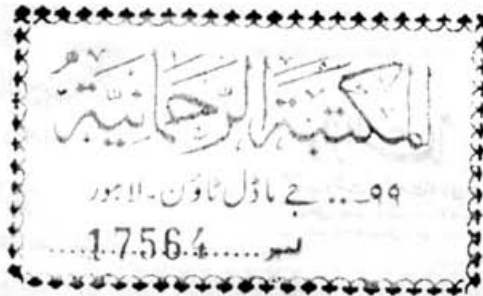 المكتبة الرحمانية
۹۹... جے ماڈل ٹاؤن۔ لاہور
نمبر.....17564.....